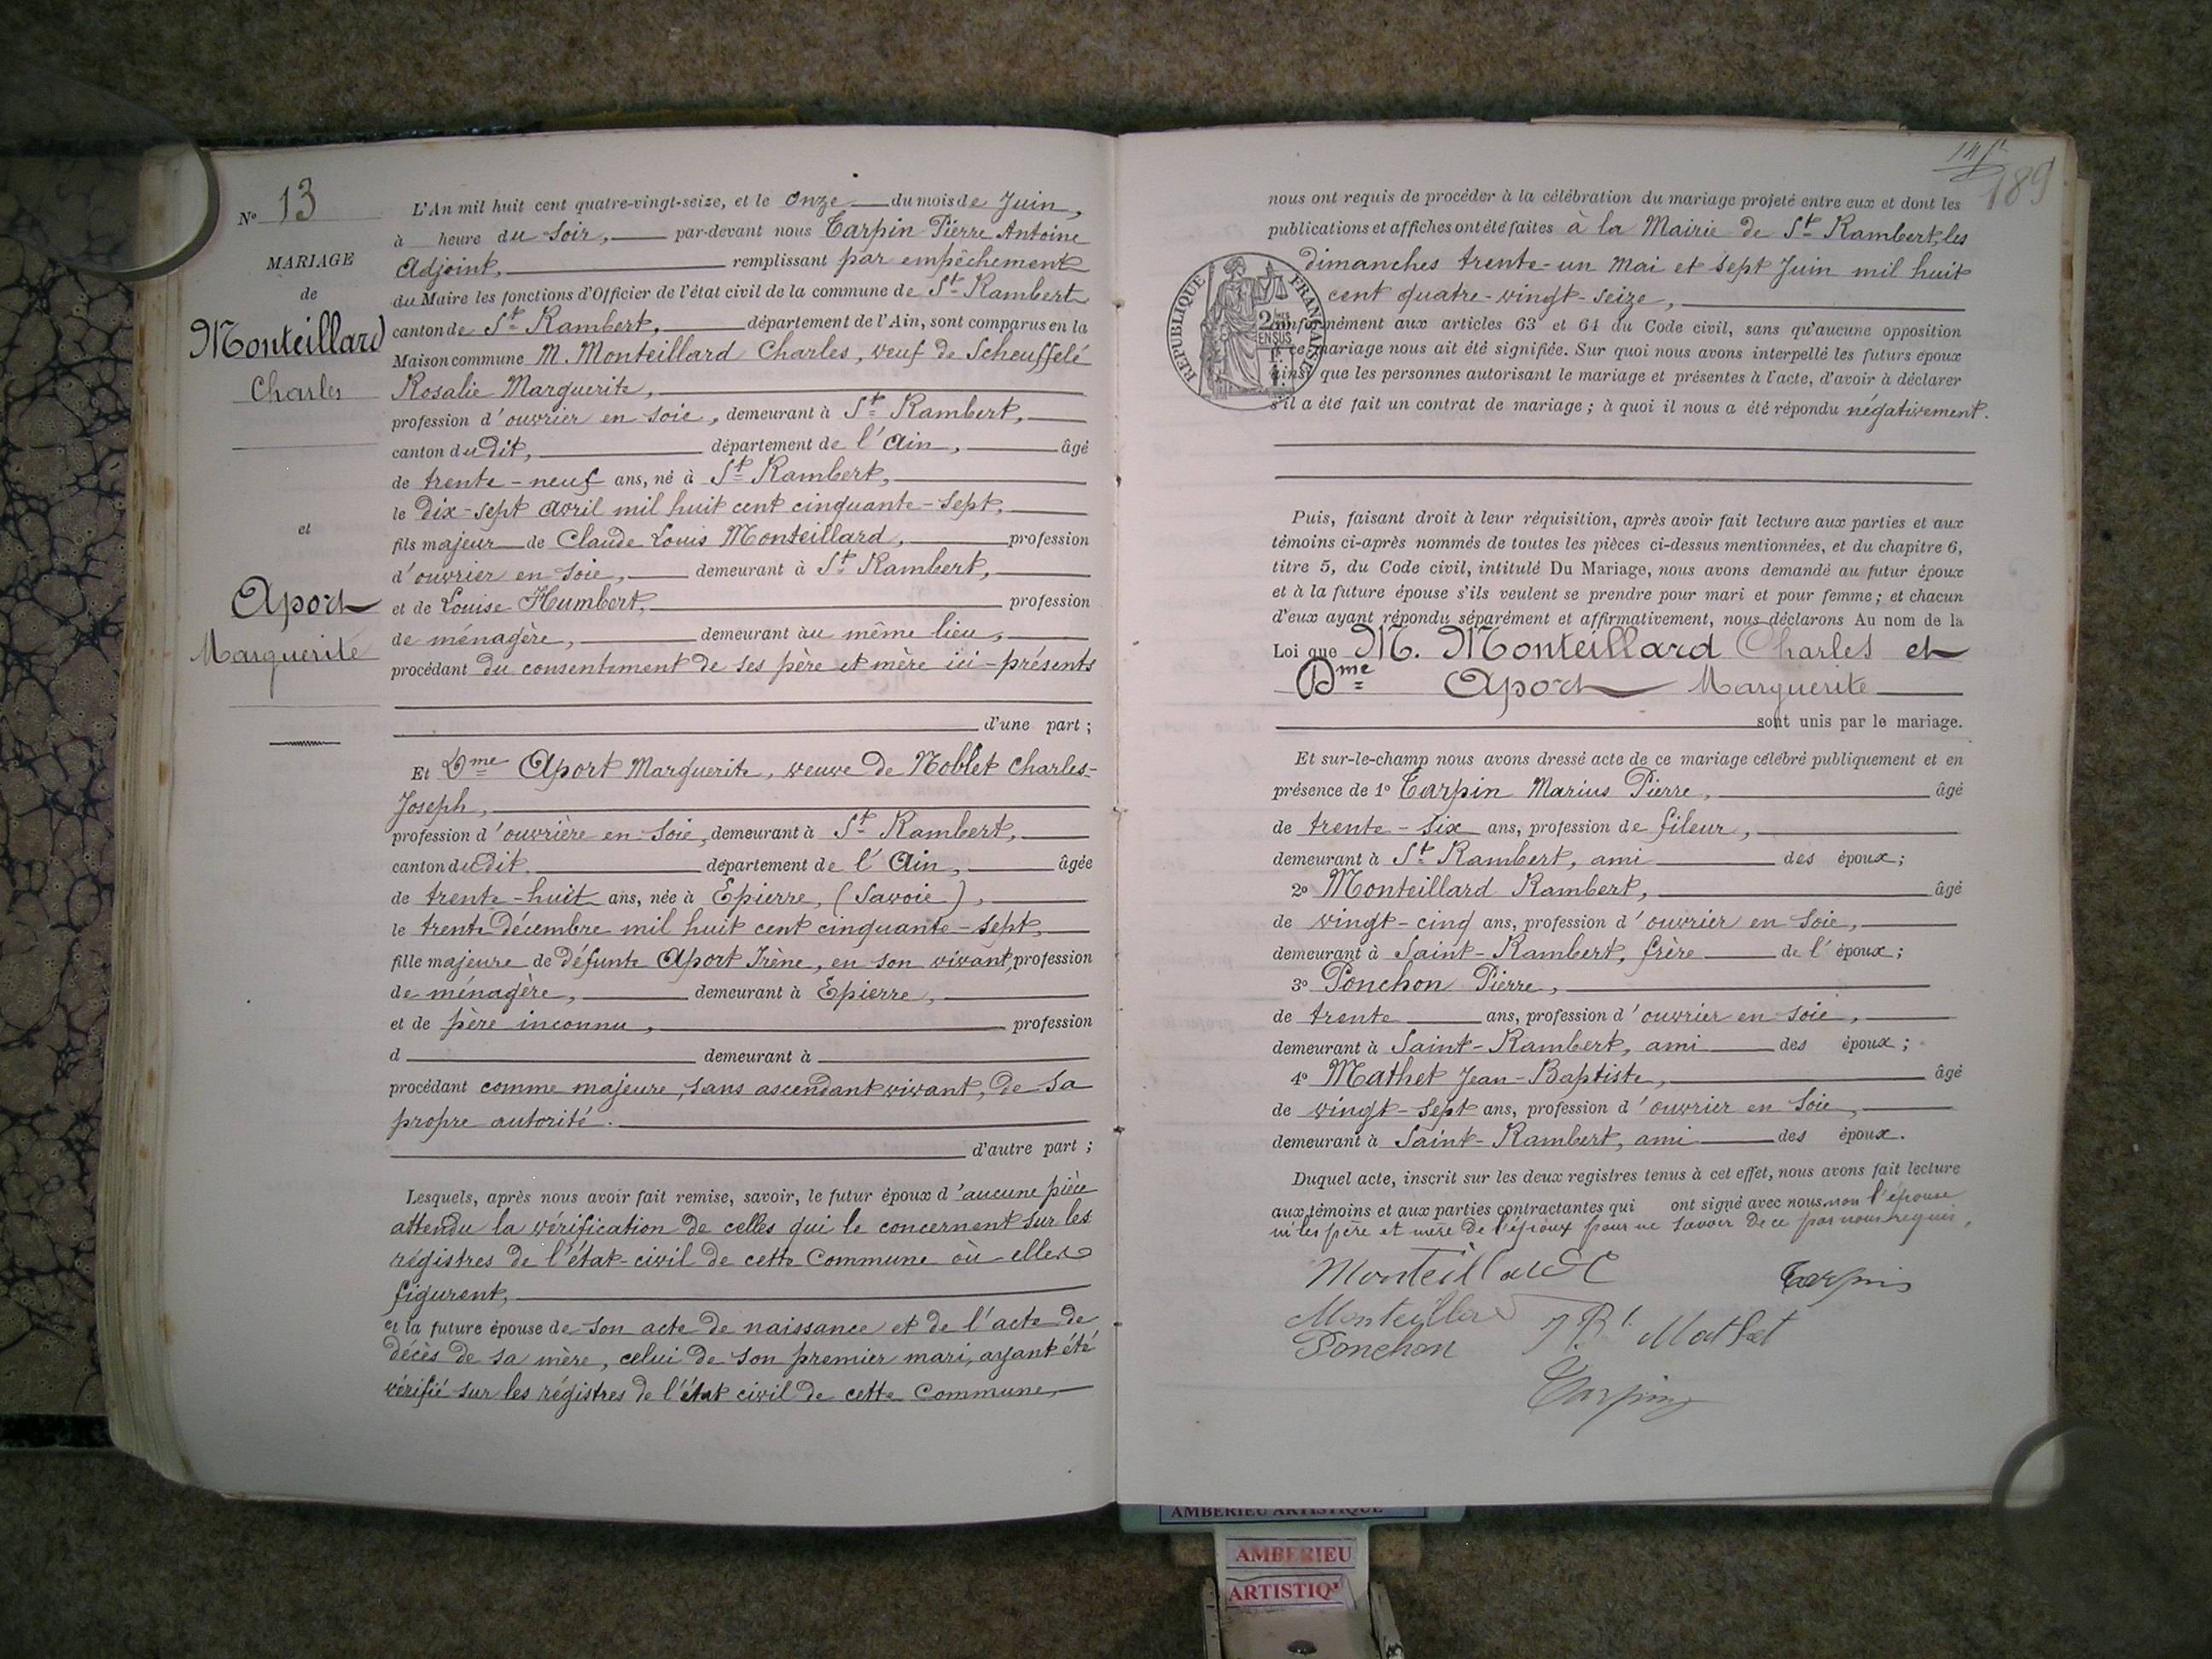 N° 13
MARIAGE
de
Monteillard
Charles
et
Aport
Marguerite
L'An mil huit cent quatre-vingt-seize, et le onze du mois de Juin,
à heure du soir, par-devant nous Tarpin Pierre Antoine
Adjoint, remplissant par empêchement
du Maire les fonctions d'Officier de l'état civil de la commune de St Rambert
canton de St Rambert, département de l'Ain, sont comparus en la
Maison commune M. Monteillard Charles, veuf de Scheuffelé
Rosalie Marguerite,
profession d'ouvrier en soie, demeurant à St Rambert,
canton dudit, département de l'Ain, âgé
de trente-neuf ans, né à St Rambert,
le dix-sept avril mil huit cent cinquante-sept,
fils majeur de Claude Louis Monteillard, profession
d'ouvrier en soie, demeurant à St Rambert,
et de Louise Humbert, profession
de ménagère, demeurant au même lieu,
procédant du consentement de ses père et mère ici-présents
d'une part ;
Et Dme Aport Marguerite, veuve de Noblet Charles-
Joseph,
profession d'ouvrière en soie, demeurant à St Rambert,
canton dudit, département de l'Ain, âgée
de trente-huit ans, née à Epierre, (Savoie),
le trente Décembre mil huit cent cinquante-sept,
fille majeure de défunte Aport Irène, en son vivant, profession
de ménagère, demeurant à Epierre,
et de père inconnu, profession
d demeurant à
procédant comme majeure, sans ascendant vivant, de sa
propre autorité.
d'autre part ;
Lesquels, après nous avoir fait remise, savoir, le futur époux d'aucune pièce
attendu la vérification de celles qui le concernent sur les
régistres de l'état-civil de cette Commune où elles
figurent,
et la future épouse de son acte de naissance et de l'acte de
décès de sa mère, celui de son premier mari, ayant été
vérifié sur les régistres de l'état civil de cette Commune,
189
nous ont requis de procéder à la célébration du mariage projeté entre eux et dont les
publications et affiches ont été faites à la Mairie de St Rambert, les
dimanches trente-un Mai et sept Juin mil huit
cent quatre-vingt-seize,
RÉPUBLIQUE FRANÇAISE
2/10es
EN SUS
conformément aux articles 63 et 64 du Code civil, sans qu'aucune opposition
à ce mariage nous ait été signifiée. Sur quoi nous avons interpellé les futurs époux
ainsi que les personnes autorisant le mariage et présentes à l'acte, d'avoir à déclarer
s'il a été fait un contrat de mariage ; à quoi il nous a été répondu négativement.
Puis, faisant droit à leur réquisition, après avoir fait lecture aux parties et aux
témoins ci-après nommés de toutes les pièces ci-dessus mentionnées, et du chapitre 6,
titre 5, du Code civil, intitulé Du Mariage, nous avons demandé au futur époux
et à la future épouse s'ils veulent se prendre pour mari et pour femme ; et chacun
d'eux ayant répondu séparément et affirmativement, nous déclarons Au nom de la
Loi que M. Monteillard Charles et
Dme Aport Marguerite
sont unis par le mariage.
Et sur-le-champ nous avons dressé acte de ce mariage célébré publiquement et en
présence de 1° Tarpin Marius Pierre, âgé
de trente-six ans, profession de fileur,
demeurant à St Rambert, ami des époux ;
2° Monteillard Rambert, âgé
de vingt-cinq ans, profession d'ouvrier en soie,
demeurant à Saint-Rambert, frère de l'époux ;
3° Ponchon Pierre,
de trente ans, profession d'ouvrier en soie,
demeurant à Saint-Rambert, ami des époux ;
4° Mathet Jean-Baptiste, âgé
de vingt-sept ans, profession d'ouvrier en soie,
demeurant à Saint-Rambert, ami des époux.
Duquel acte, inscrit sur les deux registres tenus à cet effet, nous avons fait lecture
aux témoins et aux parties contractantes qui ont signé avec nous, non l'épouse
ni les père et mère de l'époux pour ne savoir de ce par nous requis,
Monteillard C Tarpin
Monteillard J B Mathet
Ponchon
Tarpin
AMBERIEU ARTISTIQUE
AMBERIEU
ARTISTIQ